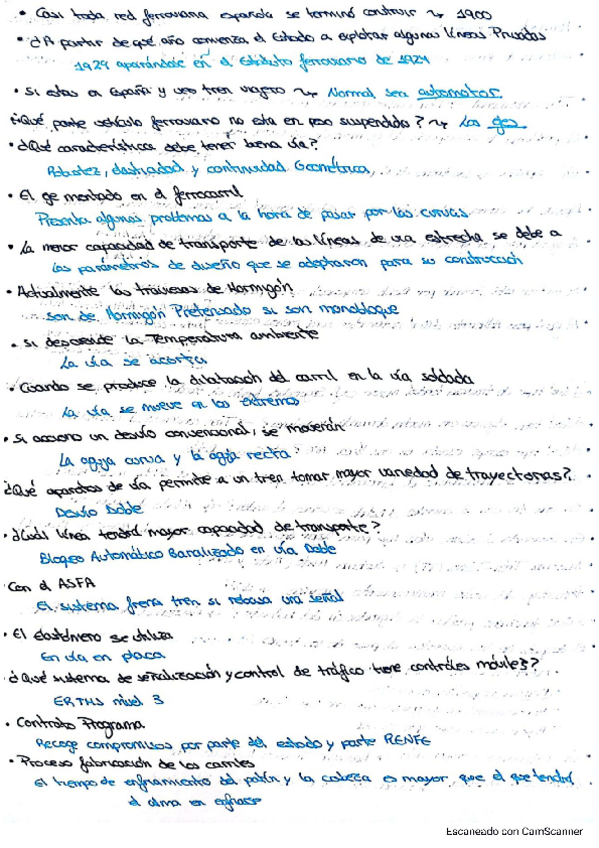 • Casi toda red ferroviaria española se terminó construir → 1900
• ¿A partir de qué año comienza el Estado a explotar algunas líneas Privadas
1924 aparándole en el Estatuto ferroviario de 1924
• Si estas en España y ves tren viajero → Normal será automotor.
¿Qué parte vehículo ferroviario no esta en peso suspendido? → Los ejes
• ¿Qué característica debe tener buena vía?
Robustez, elasticidad y continuidad Geométrica,
• El eje montado en el ferrocarril
Presenta algunos problemas a la hora de pasar por las curvas
• La menor capacidad de transporte de las líneas de vía estrecha se debe a
Los parámetros de diseño que se adoptaron para su construcción
• Actualmente las traviesas de Hormigón
son de Hormigón Pretensado si son monobloque
• Si desciende la Temperatura ambiente
La vía se acorta
• Cuando se produce la dilatación del carril en la vía soldada
La vía se mueve en los extremos
• Si acciono un desvío convencional, se moverán
La aguja curva y la aguja recta
¿Qué aparatos de vía permite a un tren tomar mayor variedad de trayectorias?
Desvío Doble
• ¿Cuál línea tendrá mayor capacidad de transporte?
Bloqeo Automático Baralizado en vía Doble
Con el ASFA
El sistema frena tren si rebasa una señal
• El elastómero se utiliza
En vía en placa
¿Qué sistema de señalización y control de tráfico tiene cantones móviles?
ERTMS nivel 3
• Contrato Programa
Recoge compromisos por parte del estado y parte RENFE
• Proceso fabricación de los carriles
El tiempo de enfriamiento del patín y la cabeza es mayor que el que tendrá
el alma en enfriarse
Escaneado con CamScanner